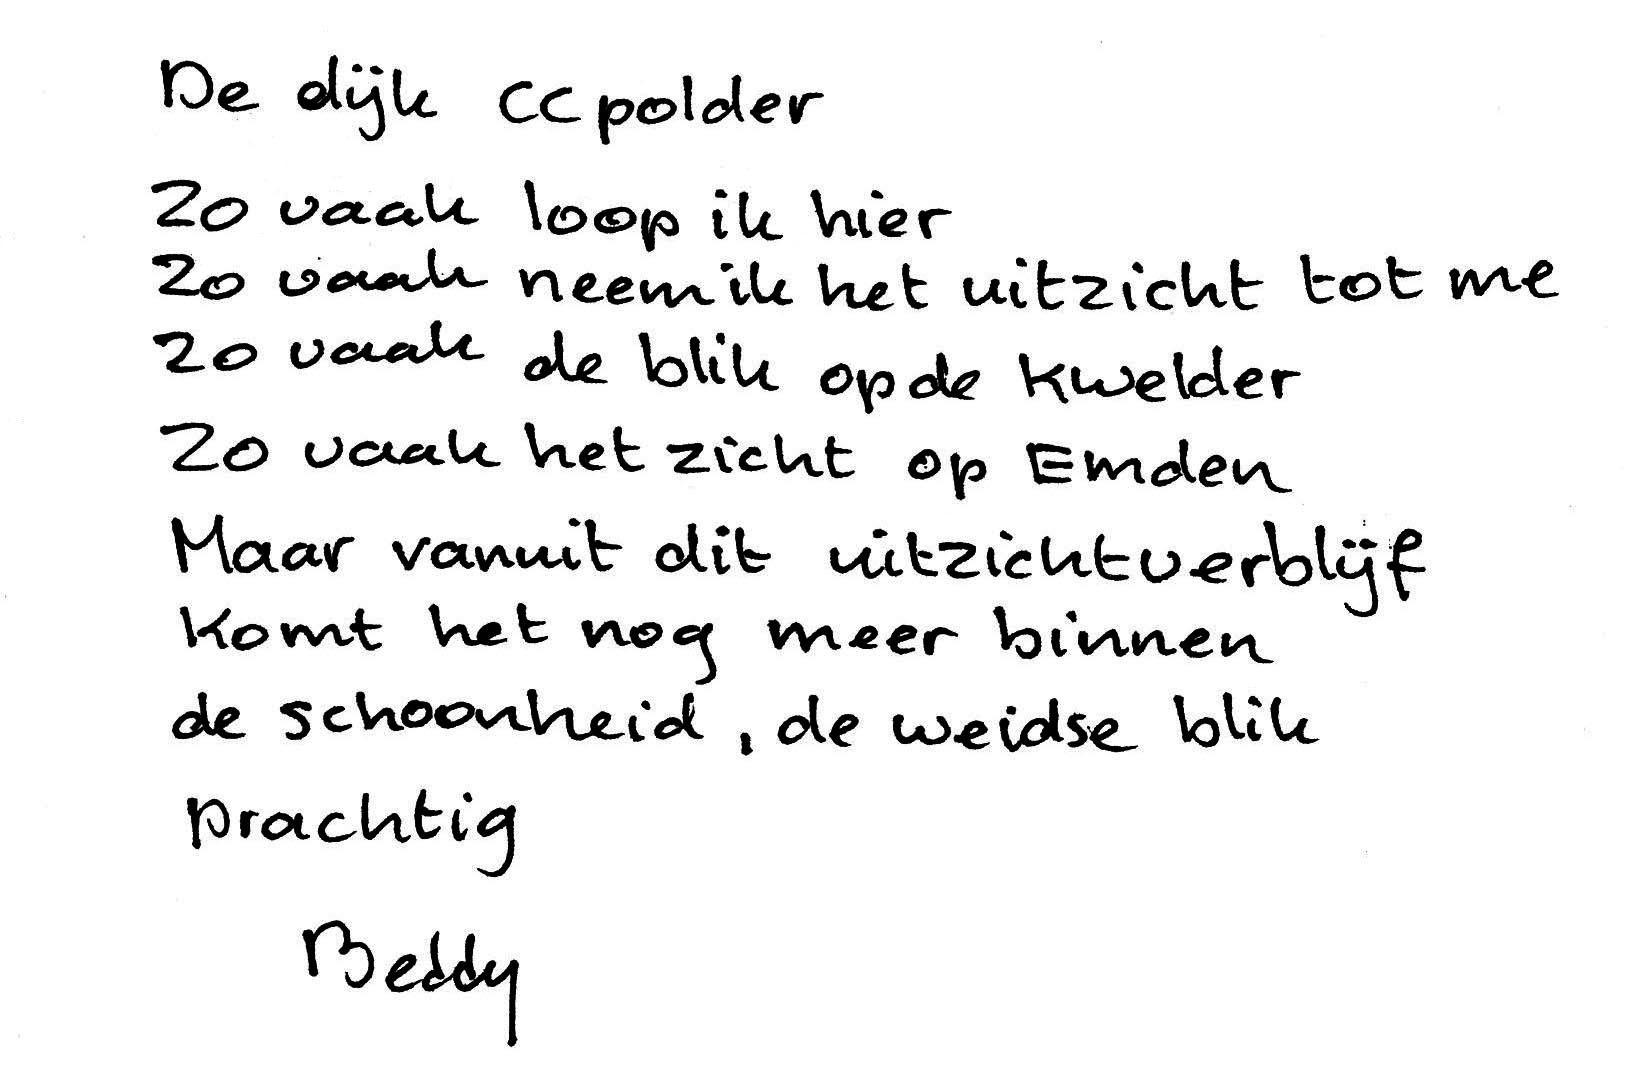 De dijk CCpolder
Zo vaak loop ik hier
Zo vaak neem ik het uitzicht tot me
Zo vaak de blik op de kwelder
Zo vaak het zicht op Emden
Maar vanuit dit uitzichtverblijf
Komt het nog meer binnen
de schoonheid, de weidse blik
prachtig
Beddy